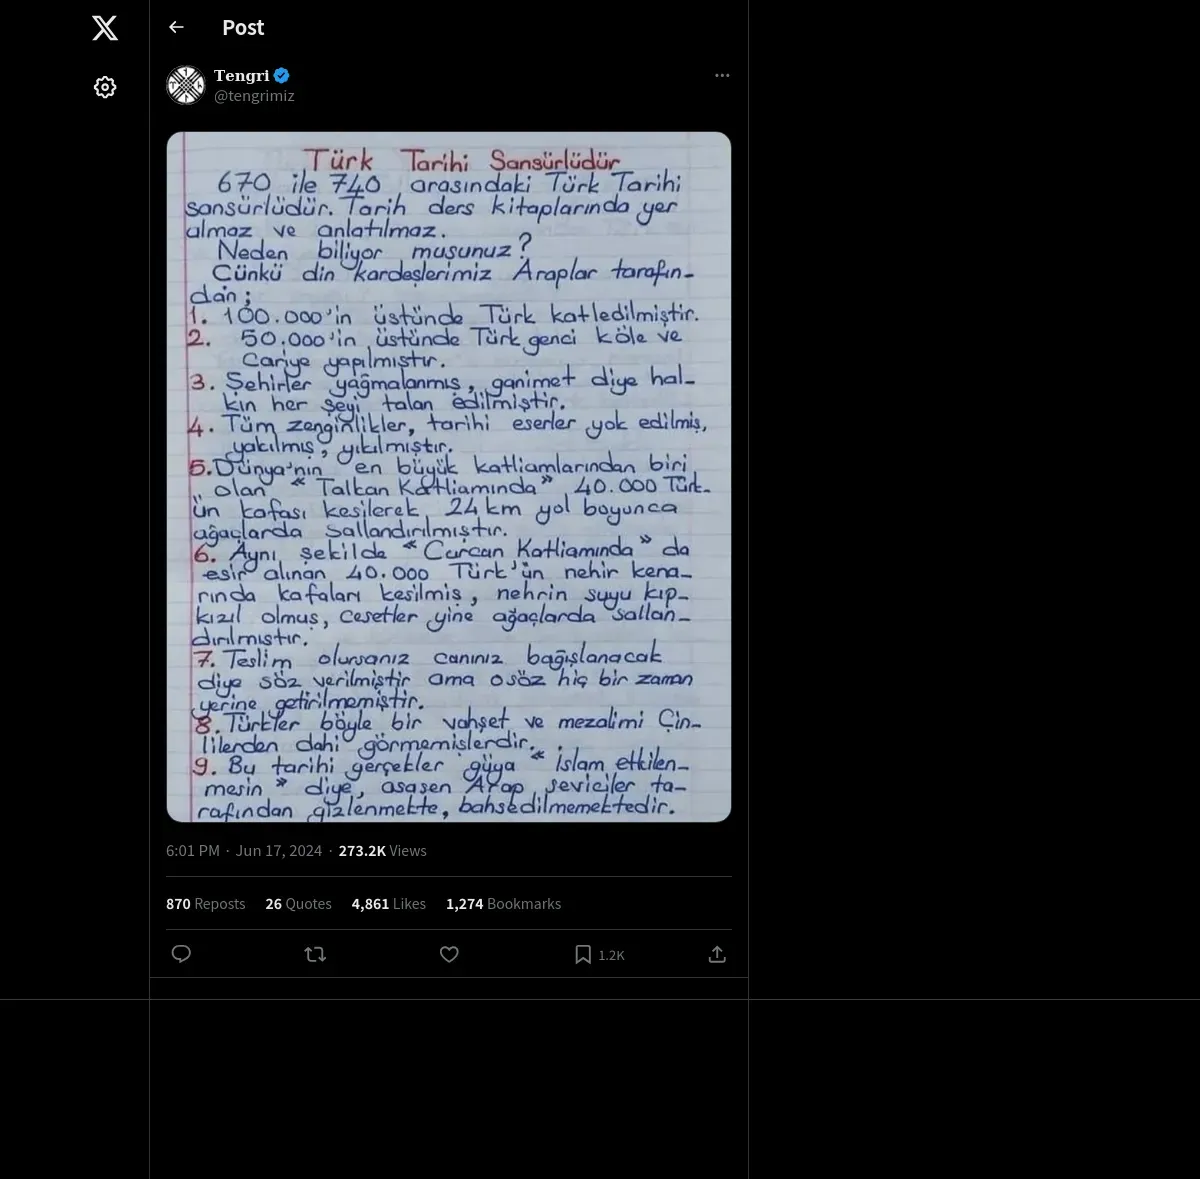 Post
Tengri
@tengrimiz
Türk Tarihi Sansürlüdür
670 ile 740 arasındaki Türk Tarihi
sansürlüdür. Tarih ders kitaplarında yer
almaz ve anlatılmaz.
Neden biliyor musunuz?
Çünkü din kardeşlerimiz Araplar tarafın-
dan;
1. 100.000'in üstünde Türk katledilmiştir.
2. 50.000'in üstünde Türk genci köle ve
Cariye yapılmıştır.
3. Şehirler yağmalanmış, ganimet diye hal-
kın her şeyi talan edilmiştir.
4. Tüm zenginlikler, tarihi eserler yok edilmiş,
yakılmış, yıkılmıştır.
5. Dünya'nın en büyük katliamlarından biri
olan "Talkan Katliamında" 40.000 Türk-
ün kafası kesilerek 24 km yol boyunca
ağaçlarda sallandırılmıştır.
6. Aynı şekilde "Curcan Katliamında" da
esir alınan 40.000 Türk'ün nehir kena-
rında kafaları kesilmiş, nehrin suyu kıp-
kızıl olmuş, cesetler yine ağaçlarda sallan-
dırılmıştır.
7. Teslim olursanız canınız bağışlanacak
diye söz verilmiştir ama o söz hiç bir zaman
yerine getirilmemiştir.
8. Türkler böyle bir vahşet ve mezalimi Çin-
lilerden dahi görmemişlerdir.
9. Bu tarihi gerçekler güya "İslam etkilen-
mesin" diye, asasen Arap seviciler ta-
rafından gizlenmekte, bahsedilmemektedir.
6:01 PM · Jun 17, 2024 · 273.2K Views
870 Reposts 26 Quotes 4,861 Likes 1,274 Bookmarks
1.2K